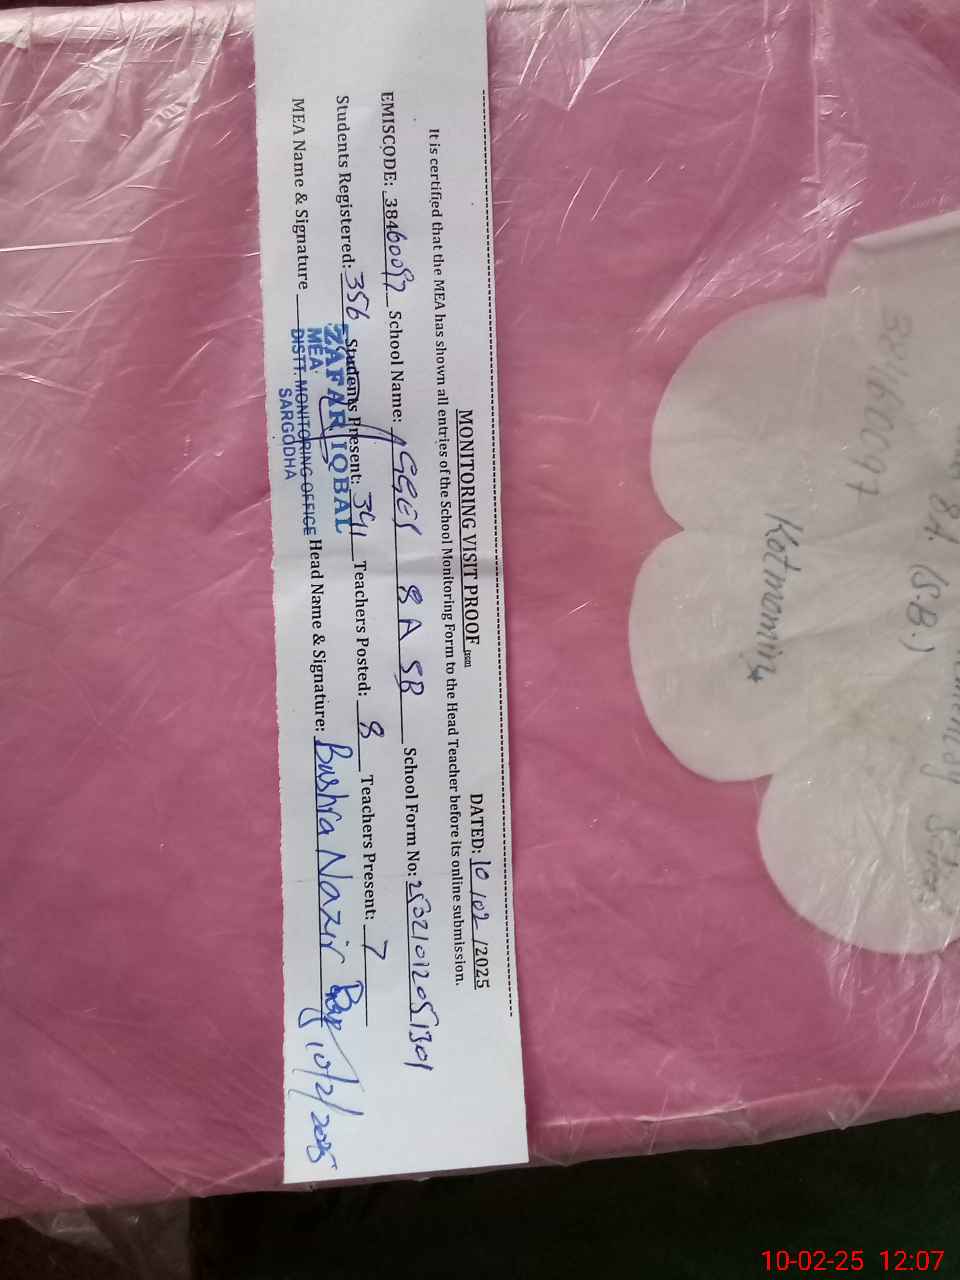 MONITORING VISIT PROOF DATED: 10/02/2025
It is certified that the MEA has shown all entries of the School Monitoring Form to the Head Teacher before its online submission.
EMISCODE: 38460097 School Name: GGES 8 A SB School Form No:
Students Registered: 356 Students Present: 341 Teachers Posted: 8 Teachers Present: 7
MEA Name & Signature ZAFAR IQBAL Head Name & Signature: Bushra Nazir 10/2/2025
MEA
DISTT. MONITORING OFFICE
SARGODHA
8A (S.B.)
38460097
Kotmomin
10-02-25 12:07